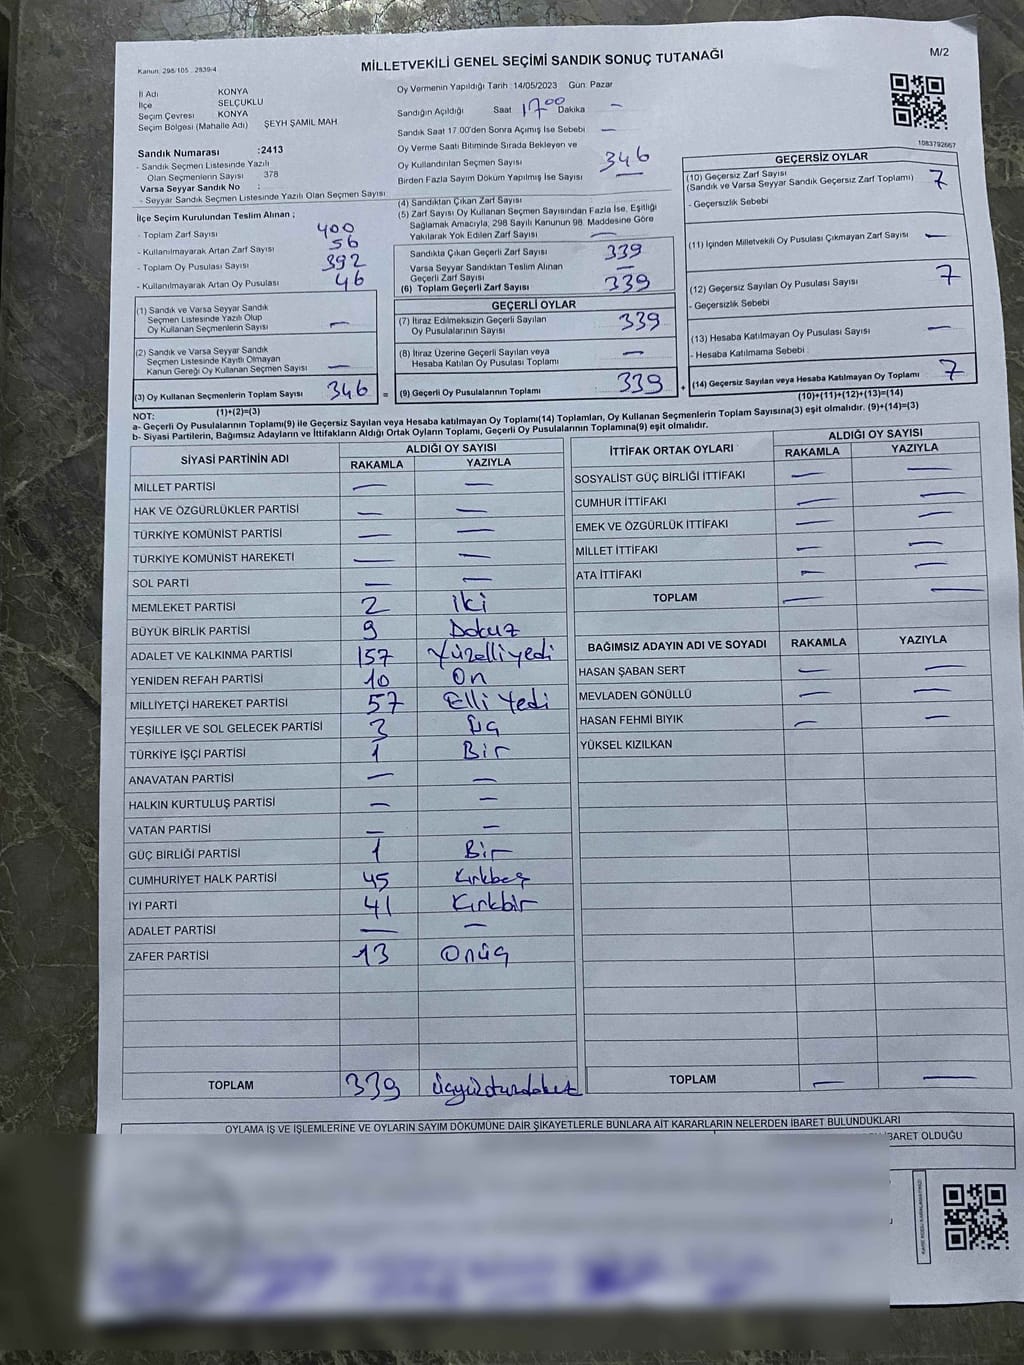 Kanun: 298/105 , 2839-4
MİLLETVEKİLİ GENEL SEÇİMİ SANDIK SONUÇ TUTANAĞI
M/2
İl Adı KONYA
İlçe SELÇUKLU
Seçim Çevresi KONYA
Seçim Bölgesi (Mahalle Adı) ŞEYH ŞAMİL MAH
Sandık Numarası :2413
- Sandık Seçmen Listesinde Yazılı
Olan Seçmenlerin Sayısı 378
Varsa Seyyar Sandık No :
- Seyyar Sandık Seçmen Listesinde Yazılı Olan Seçmen Sayısı
İlçe Seçim Kurulundan Teslim Alınan ;
- Toplam Zarf Sayısı 400
- Kullanılmayarak Artan Zarf Sayısı 56
- Toplam Oy Pusulası Sayısı 392
- Kullanılmayarak Artan Oy Pusulası 46
(1) Sandık ve Varsa Seyyar Sandık
Seçmen Listesinde Yazılı Olup
Oy Kullanan Seçmenlerin Sayısı —
(2) Sandık ve Varsa Seyyar Sandık
Seçmen Listesinde Kayıtlı Olmayan
Kanun Gereği Oy Kullanan Seçmen Sayısı —
(3) Oy Kullanan Seçmenlerin Toplam Sayısı 346 =
(1)+(2)=(3)
Oy Vermenin Yapıldığı Tarih :14/05/2023 Gün: Pazar
Sandığın Açıldığı Saat 17 00 Dakika —
Sandık Saat 17.00'den Sonra Açımış İse Sebebi —
Oy Verme Saati Bitiminde Sırada Bekleyen ve
Oy Kullandırılan Seçmen Sayısı 346
Birden Fazla Sayım Döküm Yapılmış İse Sayısı —
(4) Sandıktan Çıkan Zarf Sayısı
(5) Zarf Sayısı Oy Kullanan Seçmen Sayısından Fazla İse, Eşitliği
Sağlamak Amacıyla, 298 Sayılı Kanunun 98. Maddesine Göre
Yakılarak Yok Edilen Zarf Sayısı —
Sandıkta Çıkan Geçerli Zarf Sayısı 339
Varsa Seyyar Sandıktan Teslim Alınan
Geçerli Zarf Sayısı —
(6) Toplam Geçerli Zarf Sayısı 339
GEÇERLİ OYLAR
(7) İtiraz Edilmeksizin Geçerli Sayılan
Oy Pusulalarının Sayısı 339
(8) İtiraz Üzerine Geçerli Sayılan veya
Hesaba Katılan Oy Pusulası Toplamı —
(9) Geçerli Oy Pusulalarının Toplamı 339 +
1083792667
GEÇERSİZ OYLAR
(10) Geçersiz Zarf Sayısı 7
(Sandık ve Varsa Seyyar Sandık Geçersiz Zarf Toplamı)
- Geçersizlik Sebebi
(11) İçinden Milletvekili Oy Pusulası Çıkmayan Zarf Sayısı —
(12) Geçersiz Sayılan Oy Pusulası Sayısı 7
- Geçersizlik Sebebi
(13) Hesaba Katılmayan Oy Pusulası Sayısı —
- Hesaba Katılmama Sebebi
(14) Geçersiz Sayılan veya Hesaba Katılmayan Oy Toplamı 7
(10)+(11)+(12)+(13)=(14)
NOT:
a- Geçerli Oy Pusulalarının Toplamı(9) ile Geçersiz Sayılan veya Hesaba katılmayan Oy Toplamı(14) Toplamları, Oy Kullanan Seçmenlerin Toplam Sayısına(3) eşit olmalıdır. (9)+(14)=(3)
b- Siyasi Partilerin, Bağımsız Adayların ve İttifakların Aldığı Ortak Oyların Toplamı, Geçerli Oy Pusulalarının Toplamına(9) eşit olmalıdır.
SİYASİ PARTİNİN ADI ALDIĞI OY SAYISI
RAKAMLA YAZIYLA
MİLLET PARTİSİ — —
HAK VE ÖZGÜRLÜKLER PARTİSİ — —
TÜRKİYE KOMÜNİST PARTİSİ — —
TÜRKİYE KOMÜNİST HAREKETİ — —
SOL PARTİ — —
MEMLEKET PARTİSİ 2 iki
BÜYÜK BİRLİK PARTİSİ 9 Dokuz
ADALET VE KALKINMA PARTİSİ 157 Yüzelliyedi
YENİDEN REFAH PARTİSİ 10 On
MİLLİYETÇİ HAREKET PARTİSİ 57 Elli Yedi
YEŞİLLER VE SOL GELECEK PARTİSİ 3 Üç
TÜRKİYE İŞÇİ PARTİSİ 1 Bir
ANAVATAN PARTİSİ — —
HALKIN KURTULUŞ PARTİSİ — —
VATAN PARTİSİ — —
GÜÇ BİRLİĞİ PARTİSİ 1 Bir
CUMHURİYET HALK PARTİSİ 45 Kırkbeş
İYİ PARTİ 41 Kırkbir
ADALET PARTİSİ — —
ZAFER PARTİSİ 13 Onüç
TOPLAM 339 Üçyüzotuzdokuz
İTTİFAK ORTAK OYLARI ALDIĞI OY SAYISI
RAKAMLA YAZIYLA
SOSYALİST GÜÇ BİRLİĞİ İTTİFAKI — —
CUMHUR İTTİFAKI — —
EMEK VE ÖZGÜRLÜK İTTİFAKI — —
MİLLET İTTİFAKI — —
ATA İTTİFAKI — —
TOPLAM — —
BAĞIMSIZ ADAYIN ADI VE SOYADI RAKAMLA YAZIYLA
HASAN ŞABAN SERT — —
MEVLADEN GÖNÜLLÜ — —
HASAN FEHMİ BIYIK — —
YÜKSEL KIZILKAN
TOPLAM — —
OYLAMA İŞ VE İŞLEMLERİNE VE OYLARIN SAYIM DÖKÜMÜNE DAİR ŞİKAYETLERLE BUNLARA AİT KARARLARIN NELERDEN İBARET BULUNDUKLARI
İBARET OLDUĞU